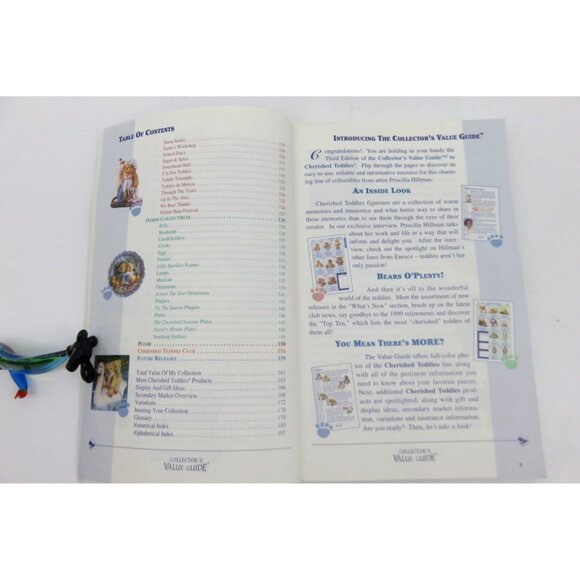 TABLE OF CONTENTS
Santa Series
Santa's Workshop
School Days
Sugar & Spice
Sweetheart Ball
T Is For Teddies
Teddie Triumphs
Teddies In Motion
Through The Years
Up In The Attic
We Bear Thanks
Winter Bear Festival
OTHER COLLECTIBLES
Bells
Bookends
Candleholders
Clocks
Eggs
Frames
Little Sparkles Frames
Lamps
Musicals
Ornaments
Across The Seas Ornaments
Plaques
'Tis The Season Plaques
Plates
The Cherished Seasons Plates
Nursery Rhyme Plates
Stocking Holders
PLUSH 150
CHERISHED TEDDIES CLUB 154
FUTURE RELEASES 159
Total Value Of My Collection 161
More Cherished Teddies® Products 163
Display And Gift Ideas 166
Secondary Market Overview 168
Variations 172
Insuring Your Collection 176
Glossary 178
Numerical Index 180
Alphabetical Index 183
COLLECTOR'S
VALUE GUIDE™
INTRODUCING THE COLLECTOR'S VALUE GUIDE™
Congratulations! You are holding in your hands the
Third Edition of the Collector's Value Guide™ to
Cherished Teddies®. Flip through the pages to discover an
easy-to-use, reliable and informative resource for this charm-
ing line of collectibles from artist Priscilla Hillman.
AN INSIDE LOOK
Cherished Teddies figurines are a collection of warm
memories and innocence and what better way to share these
memories than to see them through the eyes of their
creator. In our exclusive interview, Priscilla Hillman talks
about her work and life in a way that will
inform and delight you. After the inter-
view, check out the spotlight on Hillman's
other lines from Enesco – teddies aren't her
only passion!
BEARS O'PLENTY!
And then it's off to the wonderful
world of the teddies. Meet the assortment of new
releases in the "What's New" section, brush up on the latest
club news, say goodbye to the 1999 retirements and discover
the "Top Ten," which lists the most "cherished" teddies of
them all!
YOU MEAN THERE'S MORE?
The Value Guide offers full-color pho-
tos of the Cherished Teddies line along
with all of the pertinent information you
need to know about your favorite pieces.
Next, additional Cherished Teddies prod-
ucts are spotlighted, along with gift and
display ideas, secondary market informa-
tion, variations and insurance information.
Are you ready? Then, let's take a look!
COLLECTOR'S
VALUE GUIDE™
5